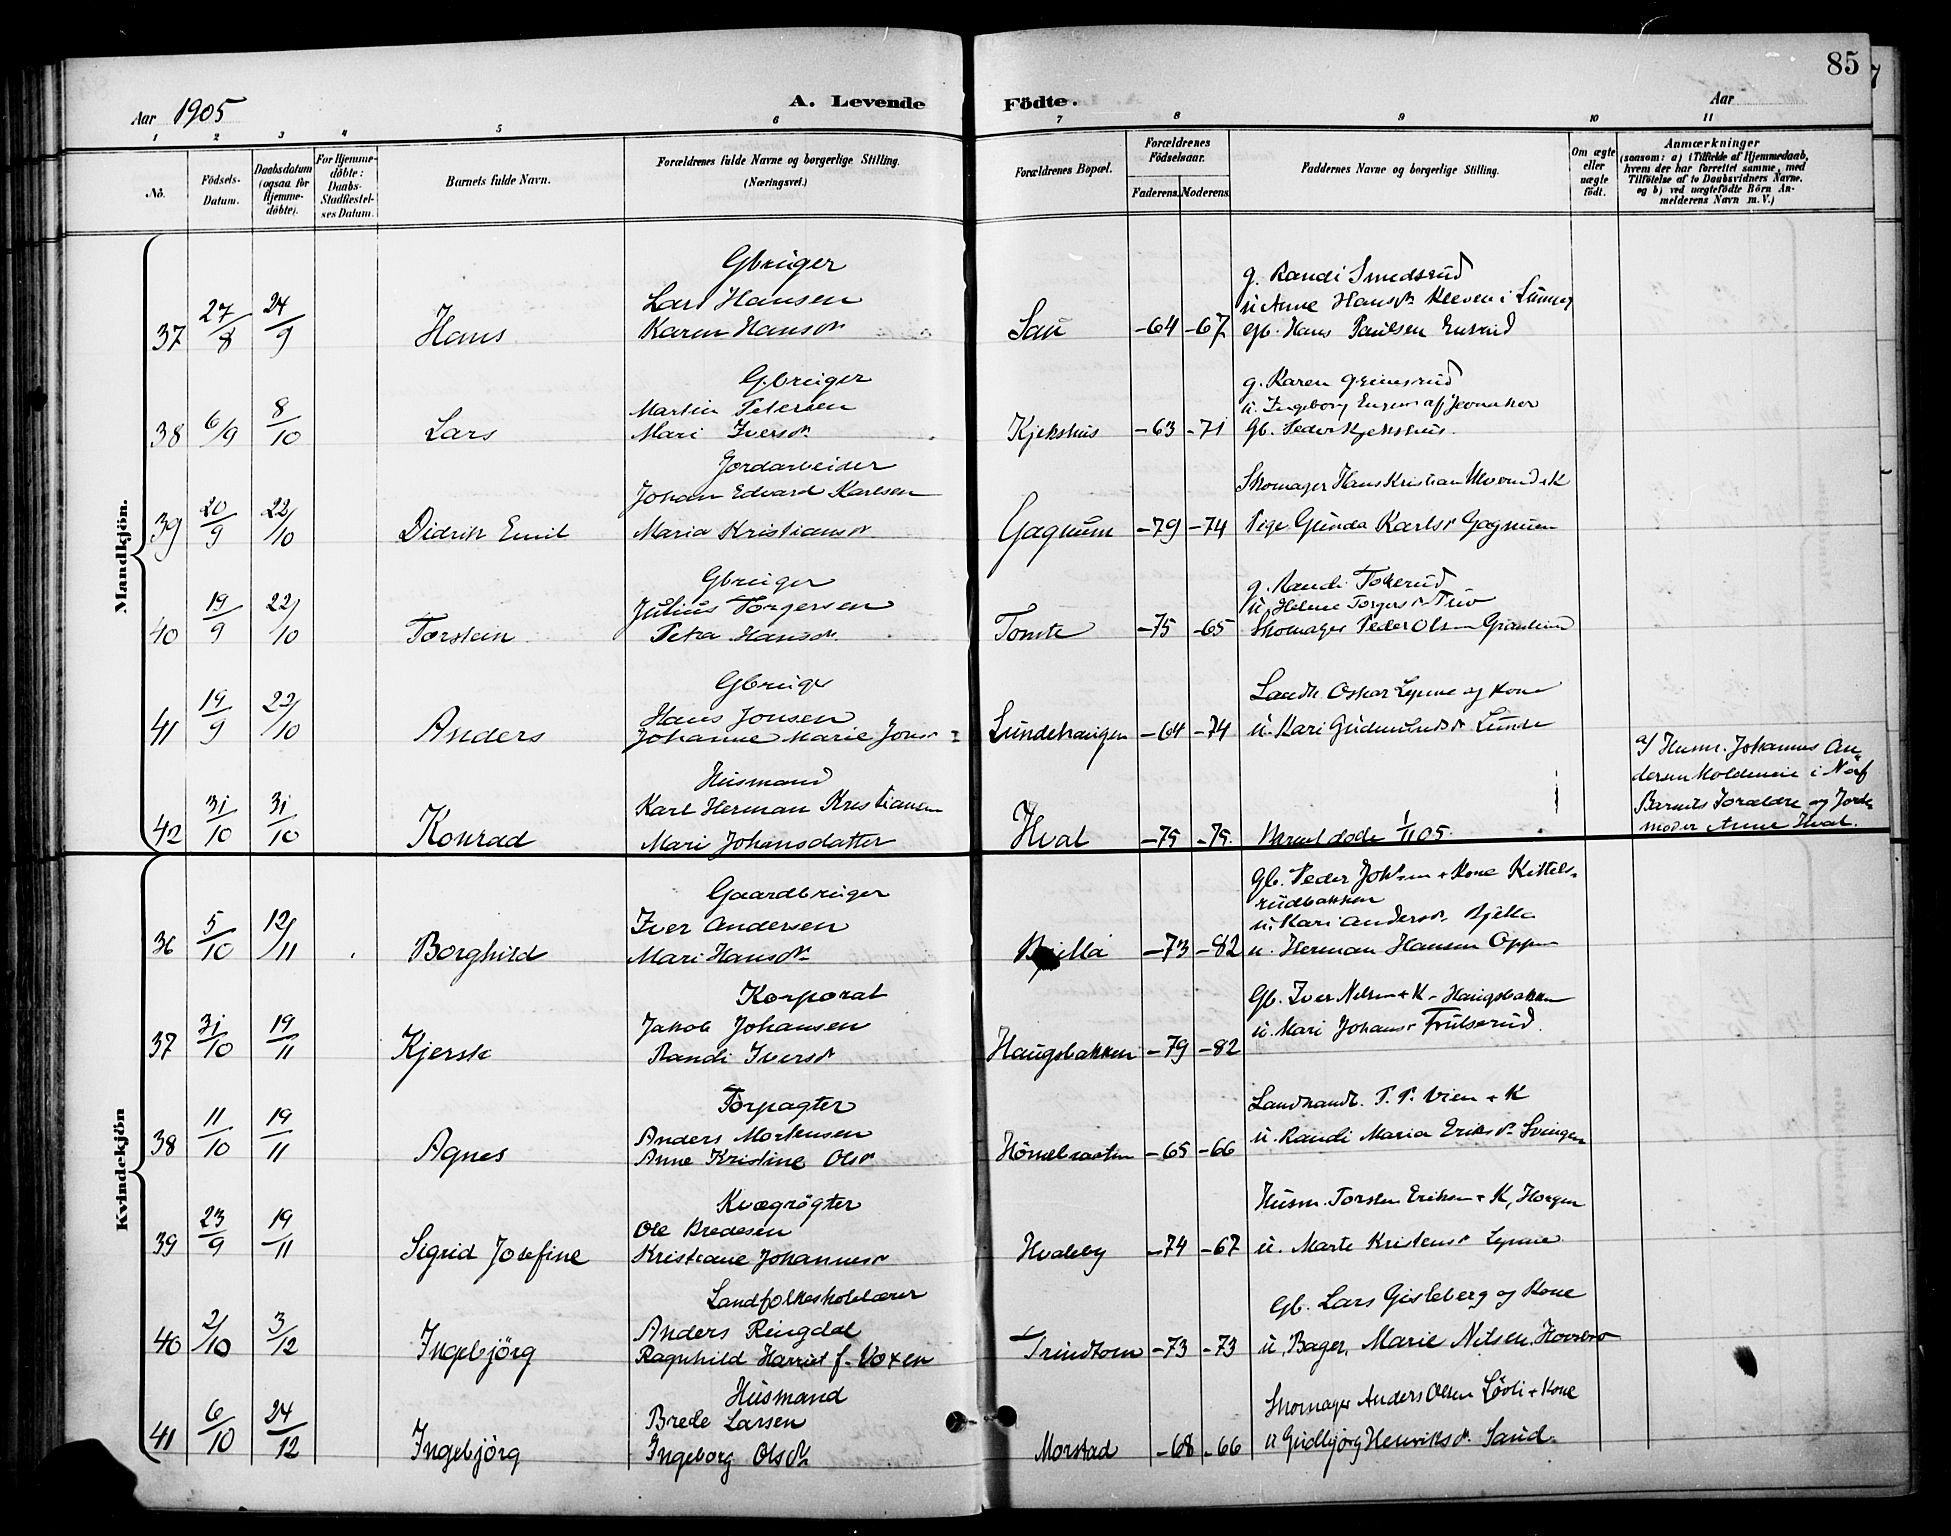 85
Aar 1905
A. Levende
Födte.
Aar
1 2 3 4 5 6 7 8 9 10 11
No.
Födsels-Datum.
Daabsdatum (ogsaa for Hjemmedöbte).
For Hjemmedöbte: Daabs-Stadfæstelses Datum.
Barnets fulde Navn.
Forældrenes fulde Navne og borgerlige Stilling. (Næringsvei.)
Forældrenes Bopæl.
Forældrenes Födselsaar.
Faderens. Moderens.
Faddernes Navne og borgerlige Stilling.
Om ægte eller uægte födt.
Anmærkninger
(saasom: a) i Tilfælde af Hjemmedaab, hvem der har forrettet samme, med Tilföielse af to Daabsvidners Navne, og b) ved uægtefödte Börn Anmelderens Navn m. V.)
Mandkjön.
Gbruger
g. Randi Smedsrud
Lars Hansen
u Anne Hansdr Kleven i Lunner
37 27/8 24/9 Hans Karen Hansdr Sau -64 -67 Gb. Hans Paulsen
Gbruger
g. Karen Grimsrud
Martin Petersen
u. Ingeborg Engen af Jevnaker
38 6/9 8/10 Lars Mari Iversdr Kjekshus -63 -71 Gb. Peder Kjekshus.
Jordarbeider
Johan Edvard Karlsen
Skomager Hans Kristian
39 20/9 22/10 Didrik Emil Maria Kristiansdr Gagnum -79 -74 Pige Gunda Karlsdr Gagnum
Gbruger
g. Randi
Julius Torgersen
u. Helene Torgersdr
40 19/9 22/10 Torstein Petra Hansdr Tomte -75 -65 Skomager Peder Olsen
Gbruger
Landh. Oskar Lynne og Kone
Hans Jonsen
41 19/9 22/10 Anders Johanne Marie Jonsdr Lundehaugen -64 -74 u. Kari Gudmundsdr Lunde
Husmand
a/ Husm. Johannes An-
Karl Herman Kristiansen
dersen Moldeneie i Nöf
Barnets Foraldre og Jorde-
42 31/10 31/10 Konrad Mari Johansdatter Hval -75 -75. Barnet döde 1/11 05. moder Anne Hval.
Kvindekjön
Gaardbruger
Gb. Peder Johsen + Kone Kittels-
rudbakken
Iver Andersen
u. Kari Andersdr Bjella
36 5/10 12/11 Borghild Mari Hansdr Bjella -73 -82 u. Herman Hansen Oppen
Korporal
Gb. Iver Nilsen + K - Haugsbakken
Jakob Johansen
u. Mari Johansdr Trulserud.
37 31/10 19/11 Kjersti Randi Iversdr Haugsbakken -79 -82
Forpagter
Landhandl. P. P. Vien + K
Anders Mortensen
u. Randi Maria Eriksdr Svingen
38 11/10 19/11 Agnes Anne Kristine Olsdr -65 -66
Kvægrögter
Husm. Torsten Eriksen + K, Horgen
Ole Bredesen
39 23/9 19/11 Sigrid Josefine Kristiane Johannesdr Hvaleby -74 -67 u. Marte Kristensdr Lynne
Landfolkeskolelærer
Gb. Lars Gisleberg og Kone
Anders Ringdal
40 2/10 3/12 Ingebjörg Ragnhild Harriet f. Voxen Trindtom -73 -73 u. Bager, Marie Nilsen,
Husmand
Skomager Anders Olsen Lövli + Kone
Brede Larsen
41 6/10 24/12 Ingebjörg Ingeborg Olsdr Morstad -68 -66 u Gudbjörg Henriksdr Sand